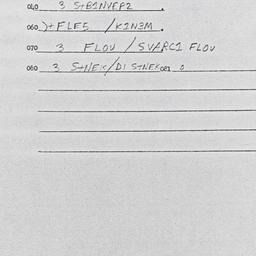 040 3 S+B1NVEP2 .
060 )+FLES /K1N3M .
070 3 FLOU / SVARC1 FLOU
080 3 S+NEK/D1 S+NEK 081 0